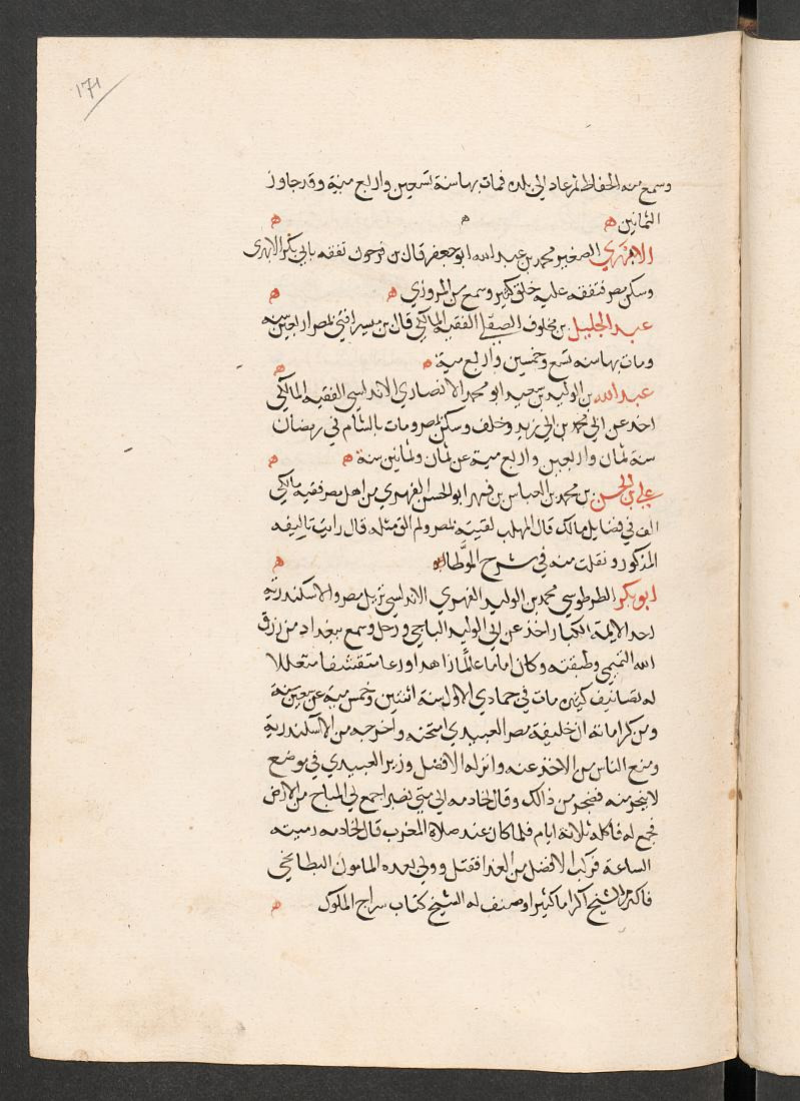 ١٧١
وسمع منه الحفاظ ثم عاد الى بلده فمات بها سنة تسعين واربع مية وقد جاوز
الثمانين ه م ه
الابهري الصغير محمد بن عبد الله ابو جعفر قال بن فرحون تفقه بابي بكر الابهرى
وسكن مصر فتفقه عليه خلق كثير وسمع من المروزي ه ه
عبد الجليل بن مخلوف الصقلي الفقيه المالكي قال بن ميسر افتى بمصر اربعين سنه
ومات بها سنه تسع وخمسين واربع مية ه ه
عبد الله بن الوليد بن سعيد ابو محمد الانصاري الاندلسي الفقيه المالكي
اخذ عن ابي محمد بن ابي زيد وخلف وسكن مصر ومات بالشام في رمضان
سنة ثمان واربعين واربع مية عن ثمان وثمانين سنة ه ه
علي بن الحسن بن محمد بن العباس بن فهر ابو الحسن الفهري من اهل مصر فقيه مالكي
الف في فضايل مالك قال المهلب لقيته بمصر ولم الق مثله قال رايت تاليفه
المذكور ونقلت منه في شرح الموطا ه ه
ابو بكر الطرطوسي محمد بن الوليد الفهري الاندلسي نزيل مصر والاسكندرية
احد الايمة الكبار اخذ عن ابي الوليد الباجي ورحل وسمع ببغداد من رزق
الله التميمي وطبقته وكان اماما عالما زاهدا ورعا متقشفا متقللا
له تصانيف كثيره مات في جمادي الاول سنة اثنتين وخمس مية عن سبعين سنة
ومن كراماته ان خليفة مصر العبيدي امتحنه واخرجه من الاسكندرية
ومنع الناس من الاخذ عنه وانزله الافضل وزير العبيدي في موضع
لا يبرح منه فضجر من ذالك وقال لخادمه الى متى نصبر اجمع لي المباح من الارض
فجمع له فاكله ثلاثة ايام فلما كان عند صلاة المغرب قال لخادمه رميته
الساعة فركب الافضل من الغد فقتل وولي بعده المامون البطايحي
فاكرم الشيخ اكراما كثيرا وصنف له الشيخ كتاب سراج الملوك ه